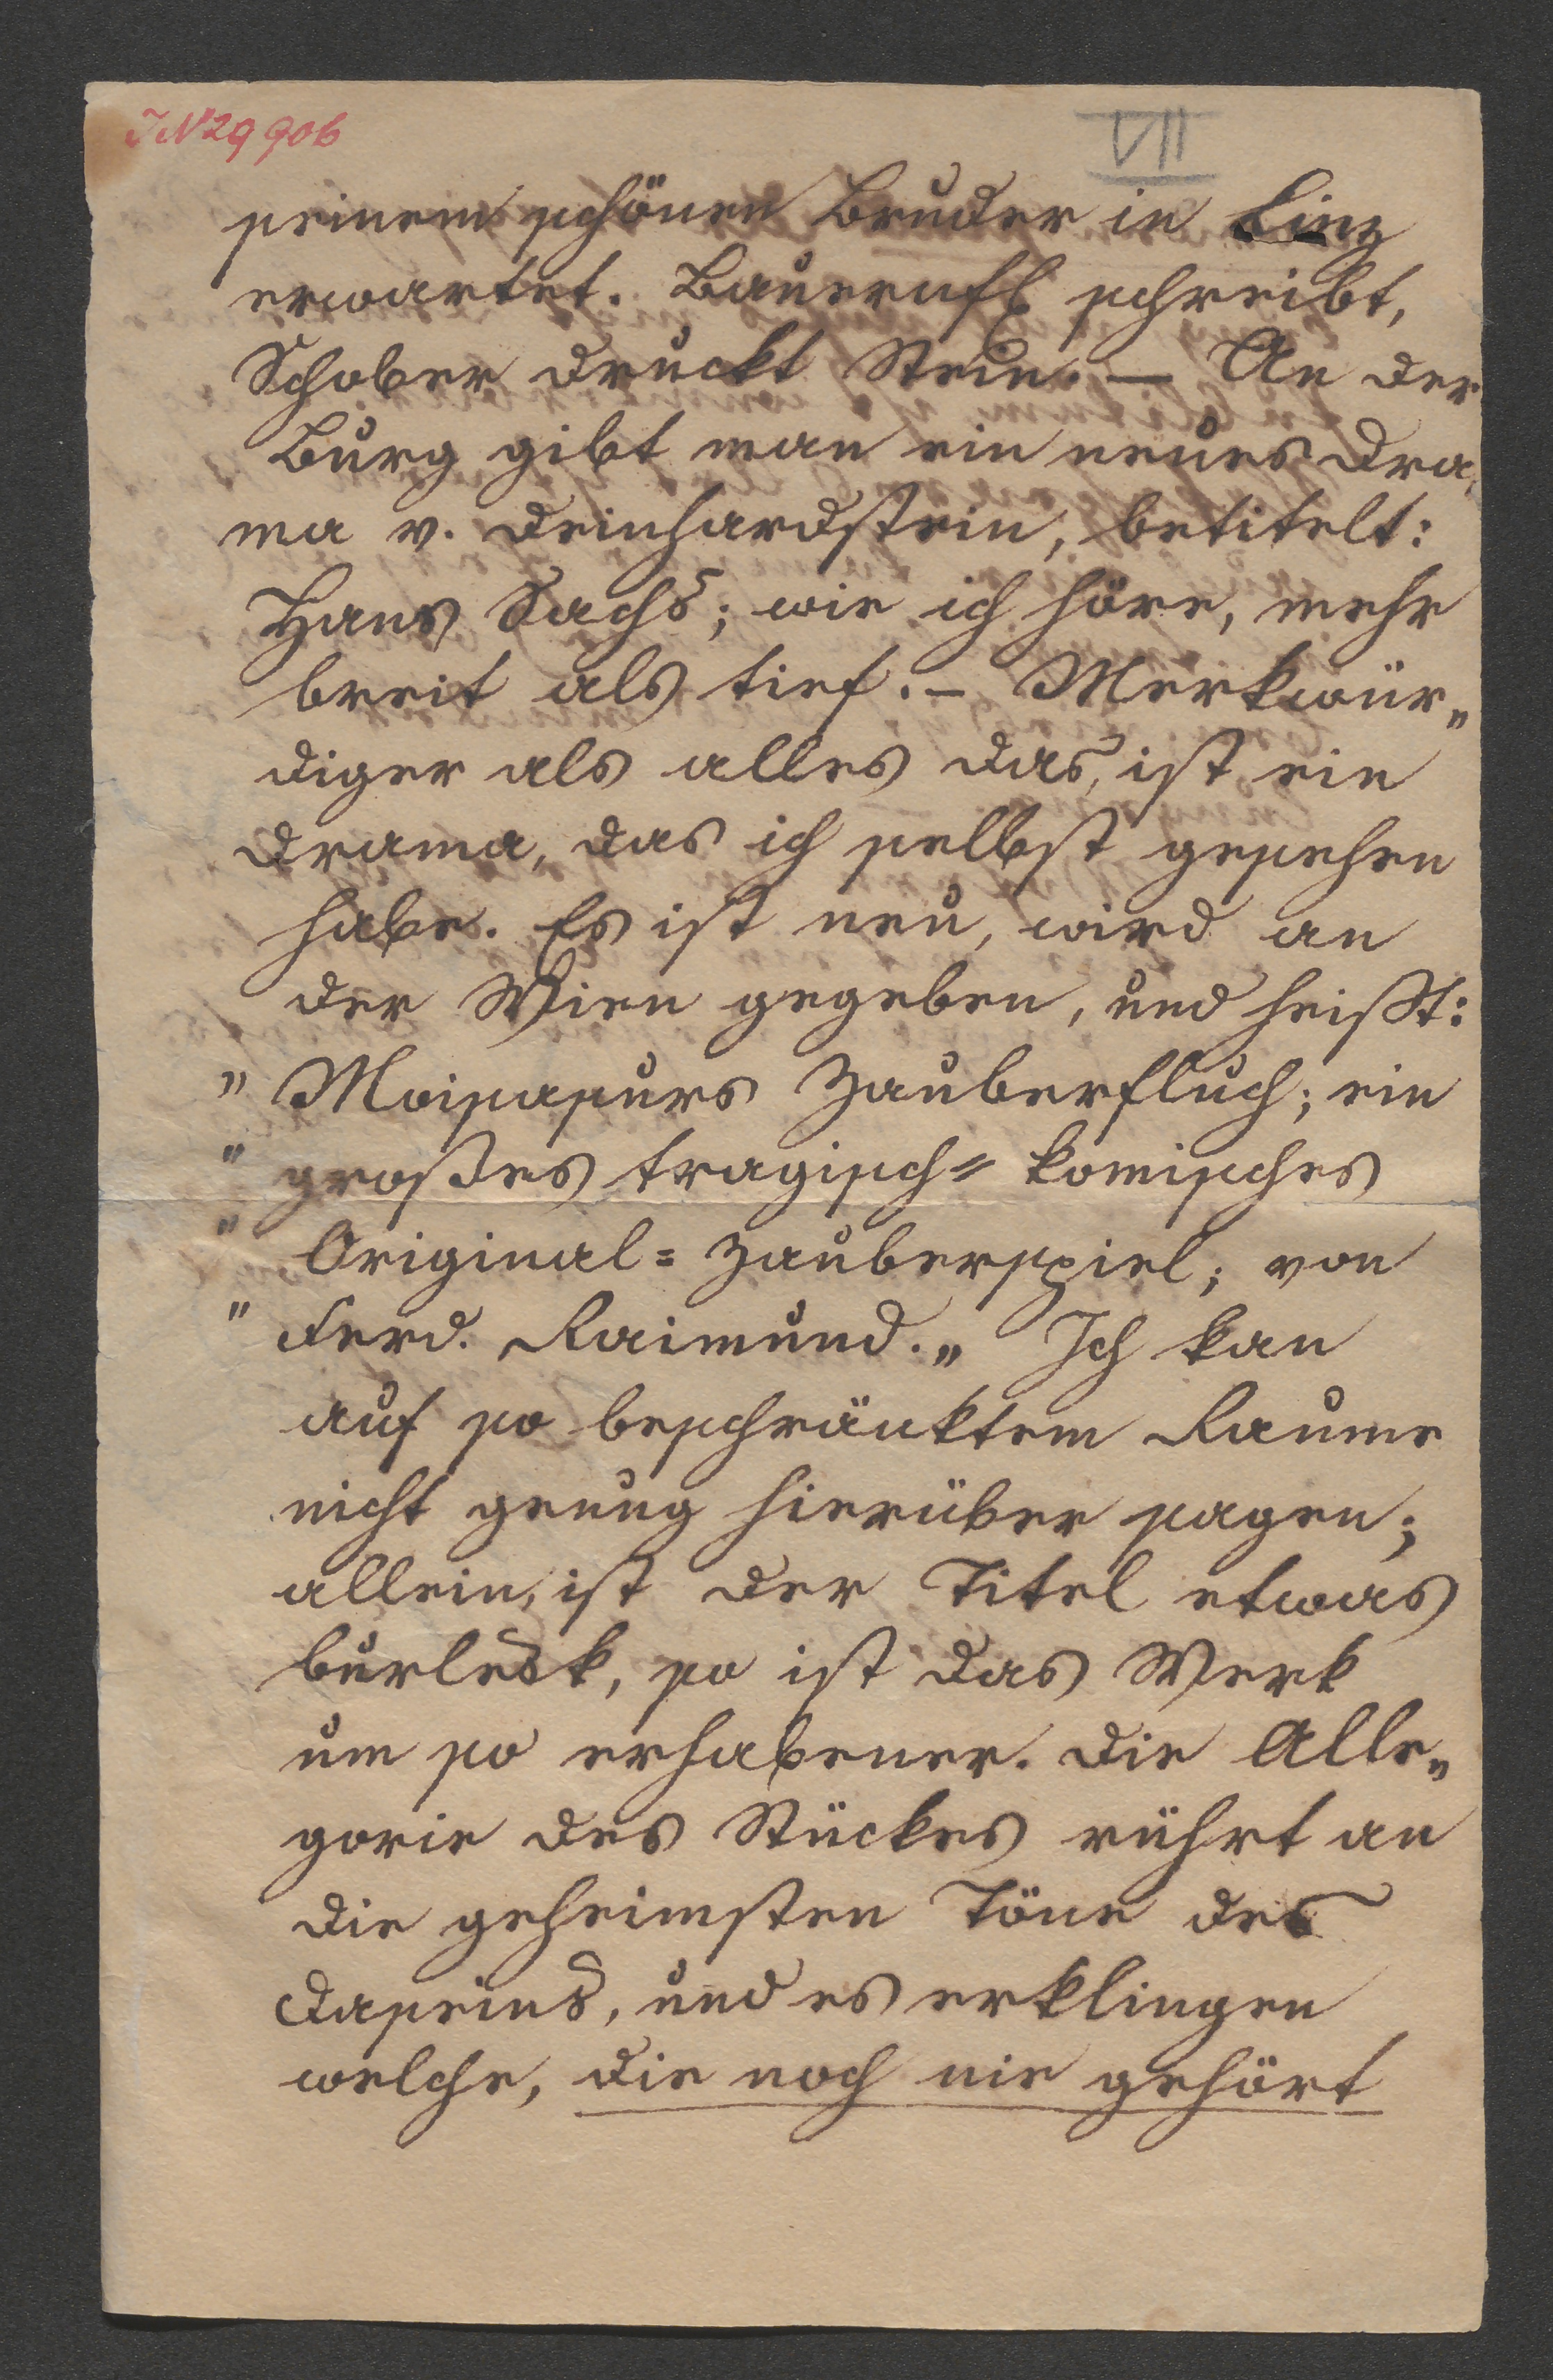 JN 29906
VII
seinem schönen Bruder in Linz
erwartet. Bauernfl schreibt,
Schober druckt Stein. — An der
Burg gibt man ein neues Dra„
ma v. Deinhardstein, betitelt:
Hans Sachs; wie ich höre, mehr
breit als tief. – Merkwür„
diger als alles das, ist ein
Drama, das ich selbst gesehen
habe. Es ist neu, wird an
der Wien gegeben, und heißt:
" Moisasurs Zauberfluch; ein
" großes tragisch= komisches
" Original= Zauberspiel; von
" Ferd. Raimund.„ Ich kan
auf so beschränktem Raume
nicht genug hierüber sagen;
allein, ist der Titel etwas
burlesk, so ist das Werk
um so erhabener. Die Alle„
gorie des Stückes rührt an
die geheimsten Töne des
Daseins, und es erklingen
welche, die noch nie gehört